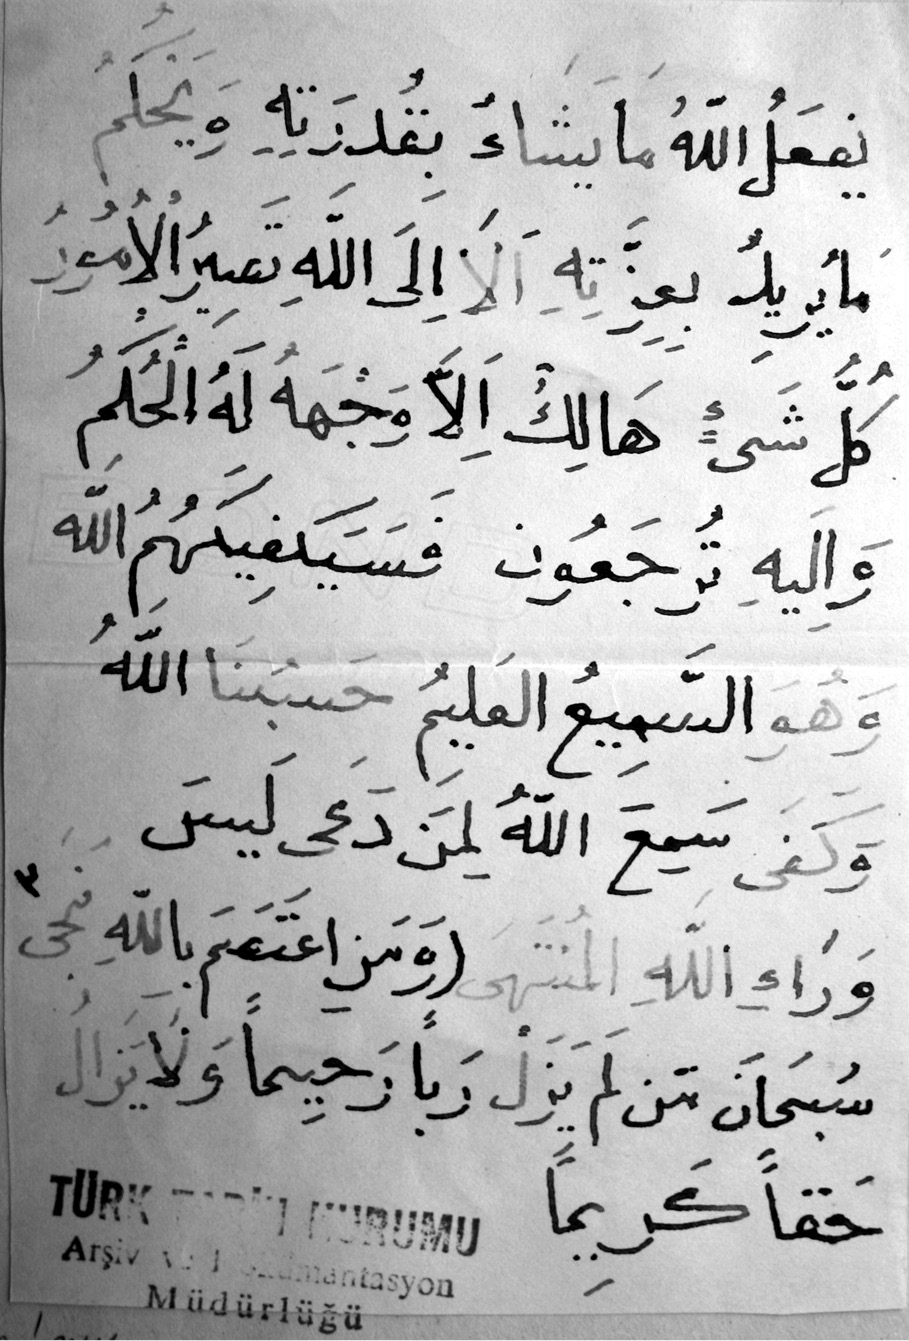 يَفعَلُ اللّٰهُ مَا يَشَاءُ بِقُدرَتِهِ وَيَحْكُمُ
مَا يُرِيدُ بِعِزَّتِهِ اَلَا اِلَى اللّٰهِ تَصِيرُ الْاُمُورُ
كُلُّ شَىْءٍ هَالِكٌ اِلَّا وَجْهَهُ لَهُ الْحُكمُ
وَاِلَيهِ تُرجَعُون فَسَيَكفِيكَهُمُ اللّٰه
وَهُوَ السَّمِيعُ العَلِيمُ حَسبُنَا اللّٰهُ
وَكَفَى سَمِعَ اللّٰهُ لِمَن دَعَى لَيسَ
وَرَاءِ اللّٰهِ المُنتَهَى (وَمَنِ اعتَصَمَ بِاللّٰهِ نَجَى ٣
سُبحَانَ مَن لَم يَزَلْ رَبًّا رَحِيماً وَلَا يَزَالُ
حَقاً كَرِيماً
TÜRK TARİH KURUMU
Arşiv ve Dokümantasyon
Müdürlüğü